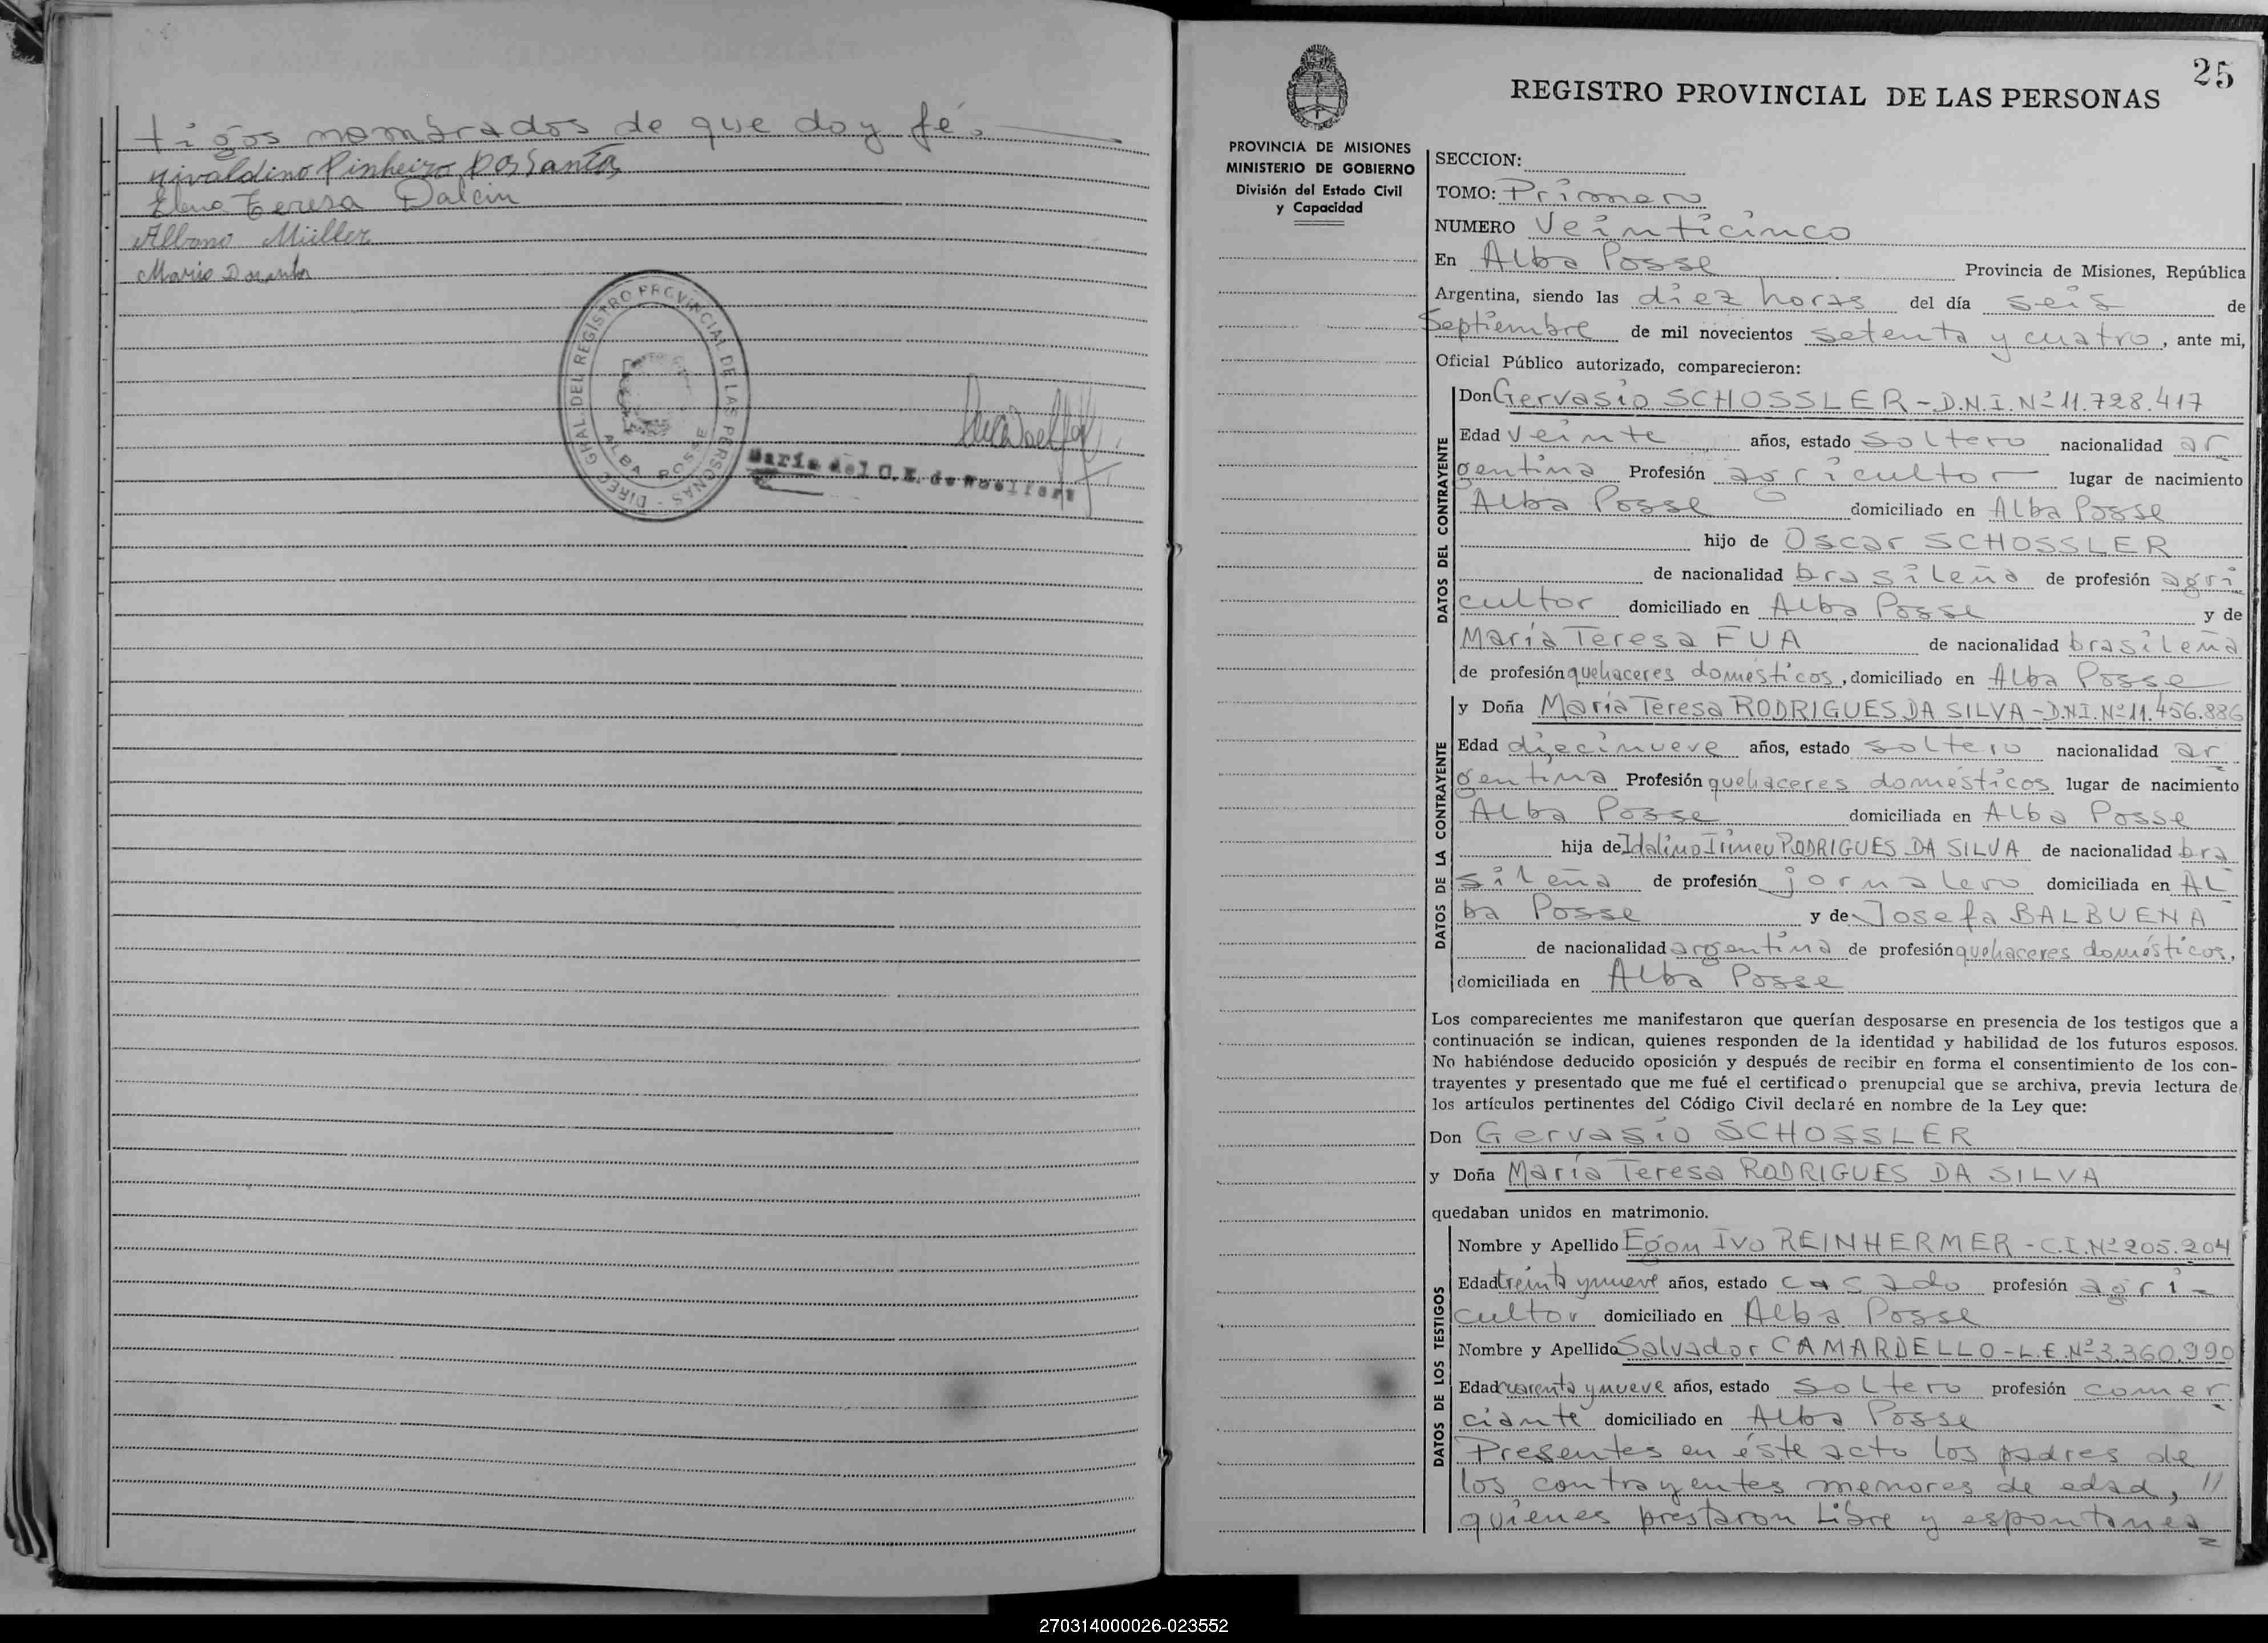 tigos nombrados de que doy fé.
Nivaldino Pinheiro Dos Santos
Elena Teresa Dalcin
Albano Müller
Mario
DIREC. GRAL. DEL REGISTRO PROVINCIAL DE LAS PERSONAS -
ALBA POSSE
María del C. K. de Woelfert
25
REGISTRO PROVINCIAL DE LAS PERSONAS
PROVINCIA DE MISIONES
MINISTERIO DE GOBIERNO
División del Estado Civil
y Capacidad
SECCION:
TOMO: Primero
NUMERO Veinticinco
En Alba Posse Provincia de Misiones, República
Argentina, siendo las diez horas del día seis de
Septiembre de mil novecientos setenta y cuatro, ante mi,
Oficial Público autorizado, comparecieron:
DATOS DEL CONTRAYENTE
Don Gervasio SCHOSSLER - D.N.I. Nº 11.728.417
Edad Veinte años, estado soltero nacionalidad ar
gentina Profesión agricultor lugar de nacimiento
Alba Posse domiciliado en Alba Posse
hijo de Oscar SCHOSSLER
de nacionalidad brasileña de profesión agri
cultor domiciliado en Alba Posse y de
María Teresa FUA de nacionalidad brasileña
de profesión quehaceres domésticos, domiciliado en Alba Posse
DATOS DE LA CONTRAYENTE
y Doña María Teresa RODRIGUES DA SILVA - D.N.I. Nº 11.456.886
Edad diecinueve años, estado soltero nacionalidad ar
gentina Profesión quehaceres domésticos lugar de nacimiento
Alba Posse domiciliada en Alba Posse
hija de Idalino Irineu RODRIGUES DA SILVA de nacionalidad bra
sileña de profesión jornalero domiciliada en AL
ba Posse y de Josefa BALBUENA
de nacionalidad argentina de profesión quehaceres domésticos,
domiciliada en Alba Posse
Los comparecientes me manifestaron que querían desposarse en presencia de los testigos que a
continuación se indican, quienes responden de la identidad y habilidad de los futuros esposos.
No habiéndose deducido oposición y después de recibir en forma el consentimiento de los con-
trayentes y presentado que me fué el certificado prenupcial que se archiva, previa lectura de
los artículos pertinentes del Código Civil declaré en nombre de la Ley que:
Don Gervasio SCHOSSLER
y Doña María Teresa RODRIGUES DA SILVA
quedaban unidos en matrimonio.
DATOS DE LOS TESTIGOS
Nombre y Apellido Egon Ivo REINHERMER - C.I. Nº 205.204
Edad treinta y nueve años, estado casado profesión agri-
cultor domiciliado en Alba Posse
Nombre y Apellido Salvador CAMARDELLO - L.E. Nº 3.360.990
Edad cuarenta y nueve años, estado soltero profesión comer
ciante domiciliado en Alba Posse
Presentes en éste acto los padres de
los contrayentes menores de edad, //
quienes prestaron libre y espontanea
270314000026-023552